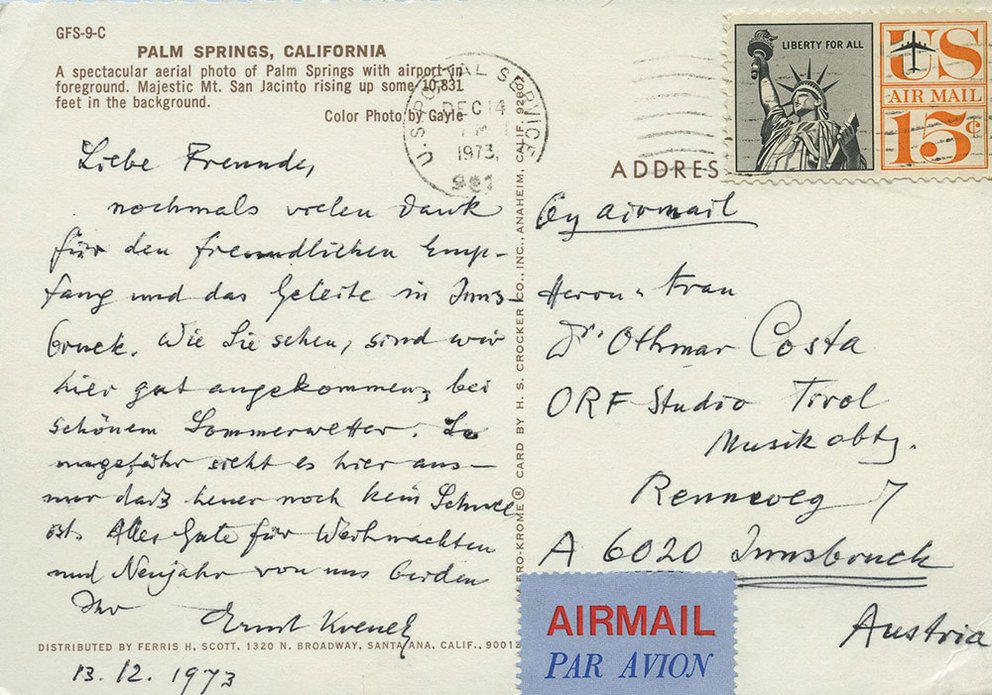 GFS-9-C
PALM SPRINGS, CALIFORNIA
A spectacular aerial photo of Palm Springs with airport in
foreground. Majestic Mt. San Jacinto rising up some 10,831
feet in the background.
Color Photo by Gayle
Liebe Freunde,
nochmals vielen Dank
für den freundlichen Emp-
fang und das Geleite in Inns-
bruck. Wie Sie sehen, sind wir
hier gut angekommen, bei
schönem Sommerwetter. So
ungefähr sieht es hier aus –
nur daß heuer noch kein Schnee
ist. Alles Gute für Weihnachten
und Neujahr von uns beiden
Ihr
Ernst Krenek
DISTRIBUTED BY FERRIS H. SCOTT, 1320 N. BROADWAY, SANTA ANA, CALIF., 9001
13.12.1973
CARD BY H. S. CROCKER CO., INC., ANAHEIM, CALIF. 9280
U.S. POSTAL SERVICE
DEC 14
PM
1973
LIBERTY FOR ALL
US
AIR MAIL
15¢
ADDRES
by airmail
Herrn u. Frau
Dr. Othmar Costa
ORF Studio Tirol
Musikabtg.
Rennweg 7
A 6020 Innsbruck
Austria
AIRMAIL
PAR AVION